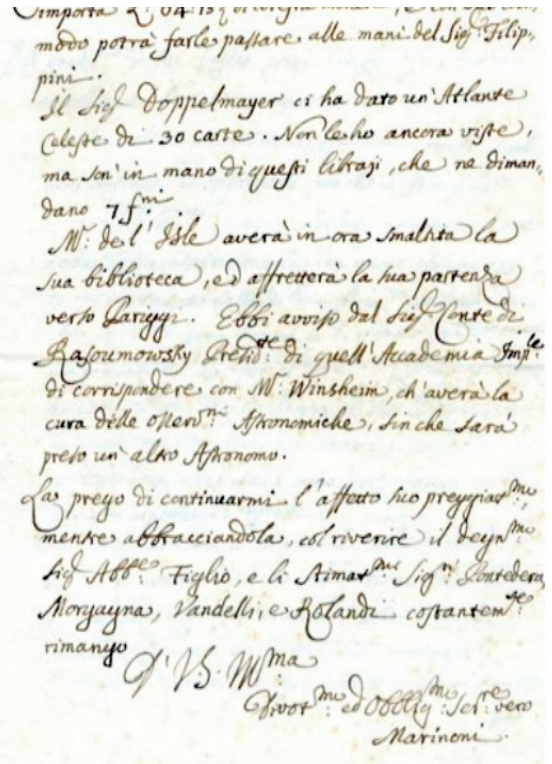 modo potrà farle passare alle mani del Sig.r Filip-
pini.
Il Sig.r Doppelmayer ci ha dato un'Atlante
Celeste di 30 carte. Non le ho ancora viste,
ma son' in mano di questi libraji, che ne diman-
dano 7 f.ni.
M.r de l'Isle averà in ora smaltita la
sua biblioteca, ed affretterà la sua partenza
verso Pariggi. Ebbi avviso dal Sig.r Conte di
Rasoumowsky Presid.te di quell'Accademia Imp.le
di corrispondere con M.r Winsheim, ch'averà la
cura delle osserv.ni Astronomiche, sin che sarà
preso un'altro Astronomo.
La prego di continuarmi l'affetto suo preggiat.mo,
mentre abbracciandola, col riverire il degn.mo
Sig.r Abb.e Figlio, e li stimat.mi Sig.ri Pontedera,
Morgagna, Vandelli, e Rolandi costantem.te
rimango
D' V.S. Ill.ma
Divot.mo ed Obblig.mo Ser.re vero
Marinoni.